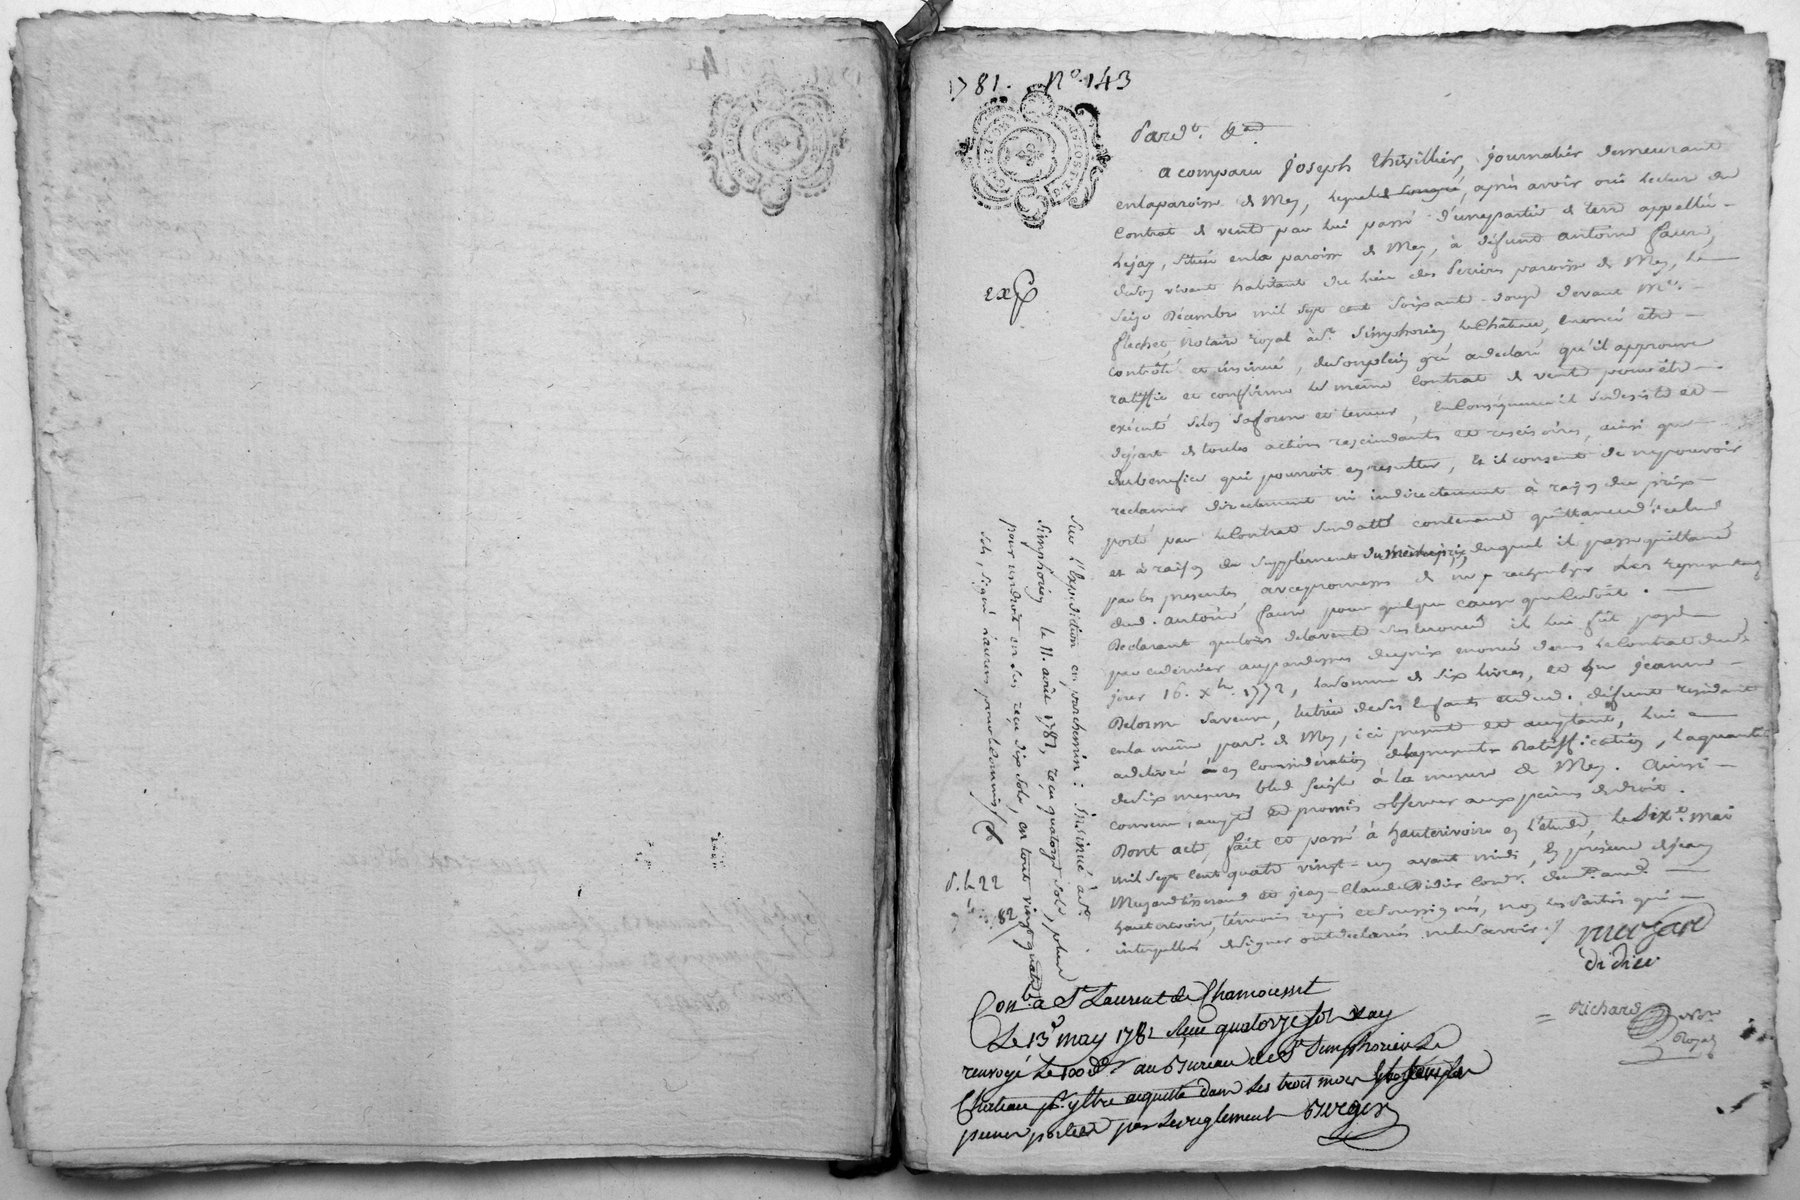 1781. N°. 143
Pardt. &a
a comparu Joseph thivillier, journalier demeurant
en la paroisse de Mey, lequel de son gré, après avoir oui lecture du
Contrat de vente par lui passé d'une partie de terre appellée
Lejay, située en la paroisse de Mey, à défunt antoine faure,
de son vivant habitant du lieu des Periers paroisse de Mey, le
seize Décembre mil sept cent soixante-douze devant Me.
flechet, Notaire royal à St. Simphorien le Château, énoncé être
contrôlé et insinué, de son plein gré a déclaré qu'il approuve
ratiffie et confirme le même Contrat de vente pour être
exécuté selon sa forme et teneur, en Conséquence il se desiste et
départ de toutes actions rescindantes et rescisoires, ainsi que
du benefice qui pourroit en resulter, et il consent de ne pouvoir
reclamer directement ni indirectement à raison du prix
porté par le Contrat susdatté contenant quittance d'icelui,
et à raison du supplément du même prix duquel il passe quittance
par les presentes avec promesse de ne rechercher les representants
dud. antoine faure pour quelque cause que ce soit.
Declarant que lors de la vente sus énoncée il lui fût payé
par ce dernier au par dessus du prix énoncé dans le Contrat dud.
jour 16. xbre. 1772, la somme de six livres, et que jeanne
Delorme sa veuve, tutrice de ses Enfants et dud. défunt residant
en la même parse. de Mey, ici presente et acceptante, lui
a délivré en Considération de la presente Ratiffication, la quantité
de six mesures bled seigle à la mesure de Mey. Ainsi
convenu, accepté et promis observer aux peines de droit.
Dont acte, fait et passé à hauterivoire en l'étude, le dixe. mai
mil sept cent quatre vingt-un avant midi, En présence de jean
Mugard tisserand et jean-Claude Didier Cordr. demts. aud.
hauterivoire, témoins requis et soussignés, non les parties qui
interpellées de signer ont déclaré ne le savoir ./.
mugard
didier
Richard
Nore
Royal
ex
Sur l'Expédition en parchemin : insinué à St.
Simphorien le 11. août 1781, reçu quatorze sols, plus
pour un droit en sus reçu dix sols, en tout vingt quatre
sols, signé Laurens pour le Commis
d. L. 22
82
Conlé. a St. Laurent de Chamousset
Le 13e may 1781 Reçu quatorze sols Jay
renvoyé Le 100e dr. au Bureau de St. Simphorien Le
Chateau pr. y être acquitté dans Les trois mois
peines portées par Les reglement Berger